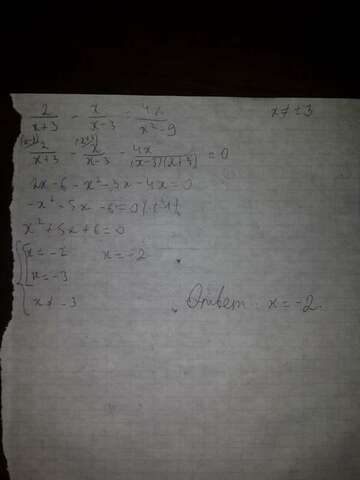 2/(x+3) - x/(x-3) = 4x/(x²-9) x ≠ ±3
(x-3) 2/(x+3) - (x+3) x/(x-3) - 4x/((x-3)(x+3)) = 0
2x - 6 - x² - 3x - 4x = 0
-x² - 5x - 6 = 0 | · (-1)
x² + 5x + 6 = 0
x = -2 x = -2
x = -3
x ≠ -3
Ответ: x = -2.